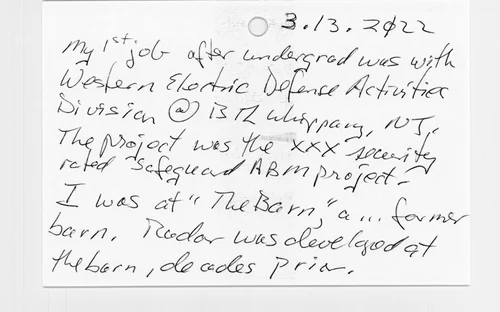 3.13.2022
My 1st job after undergrad was with
Western Electric Defense Activities
Division @ BTL Whippany, NJ.
The project was the XXX security
rated Safeguard ABM project.
I was at "The Barn," a ... former
barn. Radar was develged at
the barn, decades prior.